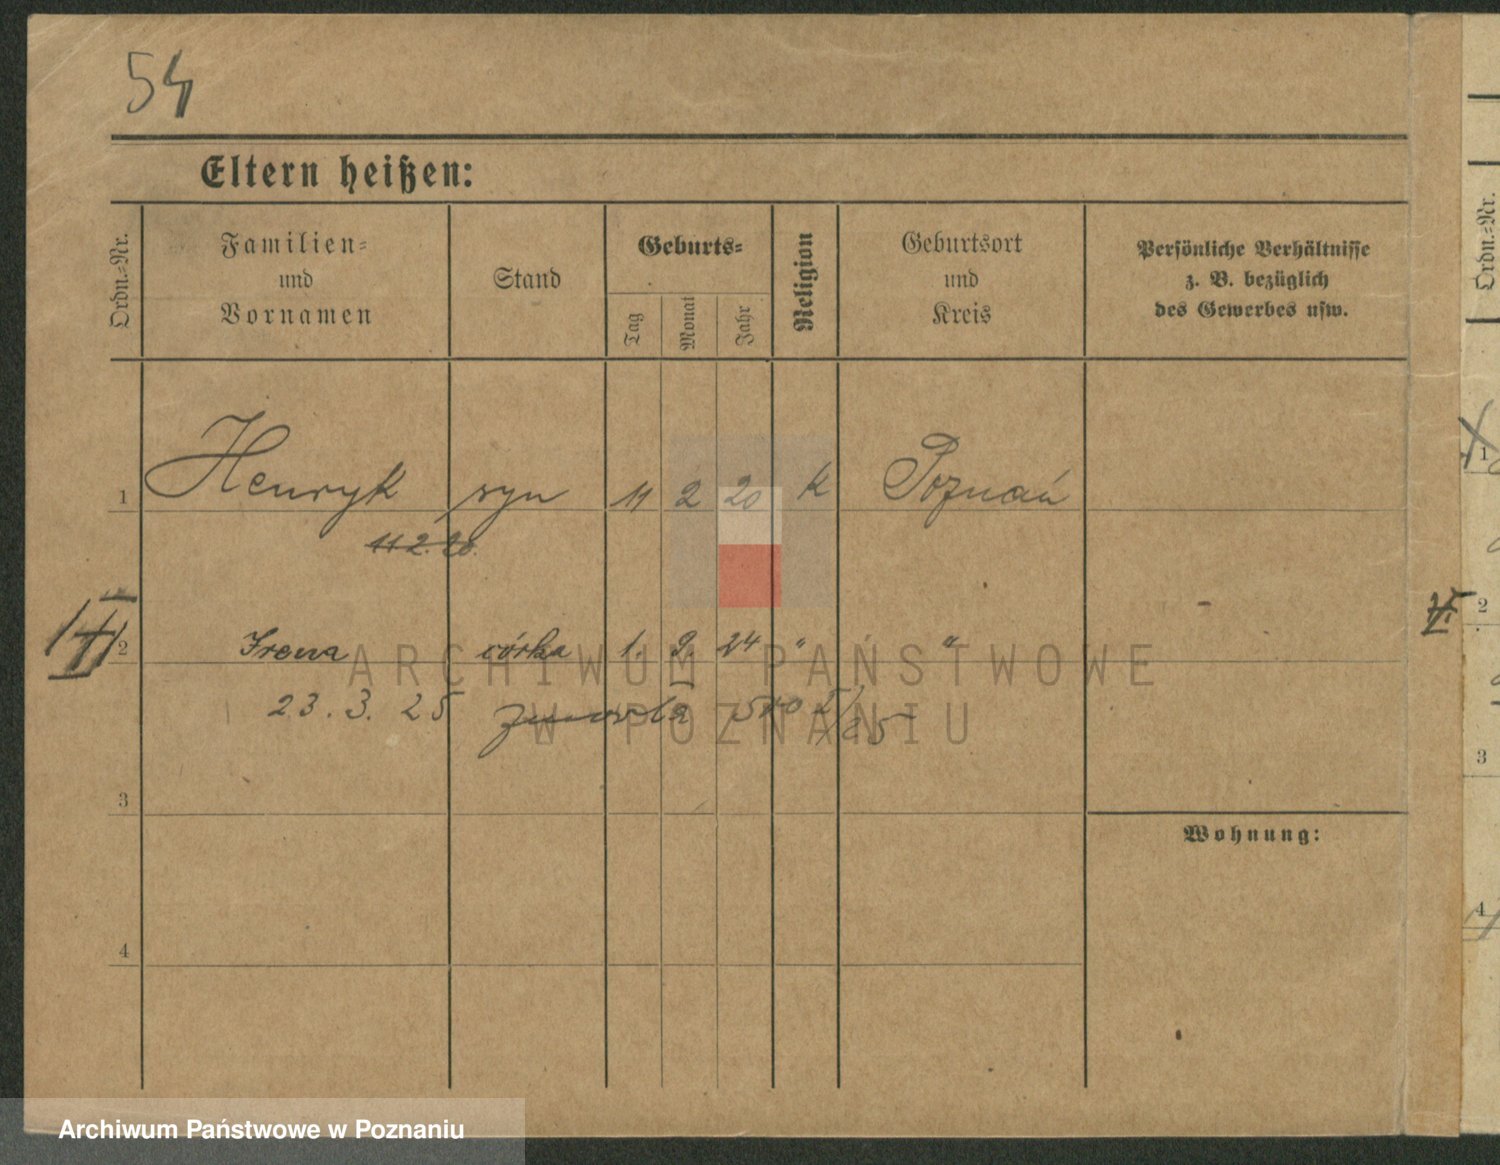 54
Eltern heißen:
Ordn.=Nr.
Familien=
und
Vornamen
Stand
Geburts=
Tag
Monat
Jahr
Religion
Geburtsort
und
Kreis
Persönliche Verhältnisse
z. B. bezüglich
des Gewerbes usw.
Ordn.=Nr.
1 Henryk syn 11 2 20 k Poznań
11 2. 20.
2 Irena córka 1. 9. 24 " "
23. 3. 25 zmarła
3
Wohnung:
4
1
2
3
4
ARCHIWUM PAŃSTWOWE
W POZNANIU
Archiwum Państwowe w Poznaniu